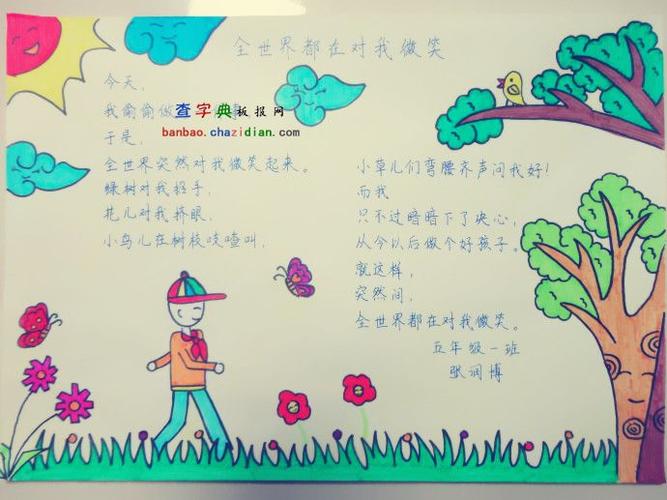 全世界都在对我微笑
今天，
我偷偷做
查字典板报网
banbao.chazidian.com
于是，
全世界突然对我微笑起来。
绿树对我招手，
花儿对我挤眼，
小鸟儿在树枝吱喳叫，
小草儿们弯腰齐声问我好！
而我
只不过暗暗下了决心，
从今以后做个好孩子。
就这样，
突然间，
全世界都在对我微笑。
五年级一班
张润博